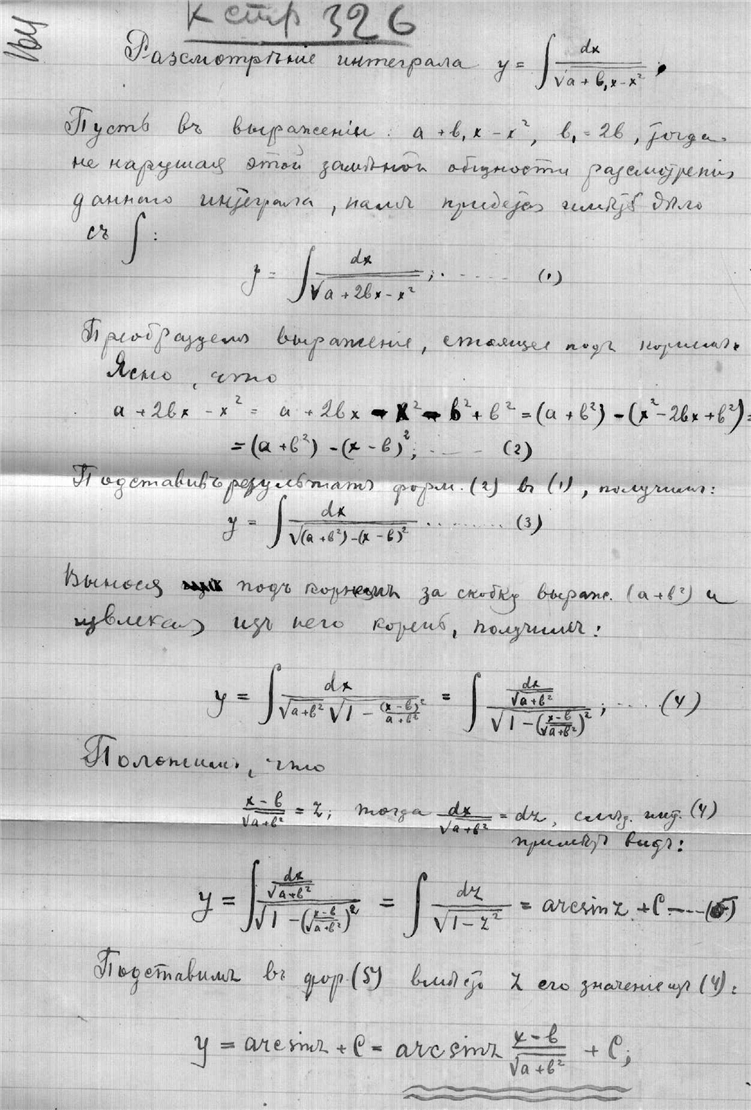 К стр 326
Разсмотрѣніе интеграла y = ∫ dx / √(a + b₁x − x²),
Пусть въ выраженіи: a + b₁x − x², b₁ = 2b, тогда
не нарушая этой замѣной общности разсмотрѣнія
даннаго интеграла, намъ придется имѣть дѣло
съ ∫:
y = ∫ dx / √(a + 2bx − x²); ...... (1)
Преобразуемъ выраженіе, стоящее подъ корнемъ.
Ясно, что
a + 2bx − x² = a + 2bx − x² − b² + b² = (a + b²) − (x² − 2bx + b²) =
= (a + b²) − (x − b)²; ...... (2)
Подставивъ результатъ форм. (2) въ (1), получимъ:
y = ∫ dx / √((a + b²) − (x − b)²) ........ (3)
Вынося подъ корнемъ за скобку выраж. (a + b²) и
извлекая изъ него корень, получимъ:
y = ∫ dx / (√(a + b²) √(1 − (x − b)²/(a + b²))) = ∫ (dx/√(a + b²)) / √(1 − ((x − b)/√(a + b²))²); .... (4)
Положимъ, что
(x − b)/√(a + b²) = z; тогда dx/√(a + b²) = dz, слѣд. инт. (4)
приметъ видъ:
y = ∫ (dx/√(a + b²)) / √(1 − ((x − b)/√(a + b²))²) = ∫ dz / √(1 − z²) = arcsin z + C ---- (5)
Подставимъ въ фор. (5) вмѣсто z его значеніе изъ (4):
y = arcsin z + C = arcsin (x − b)/√(a + b²) + C;